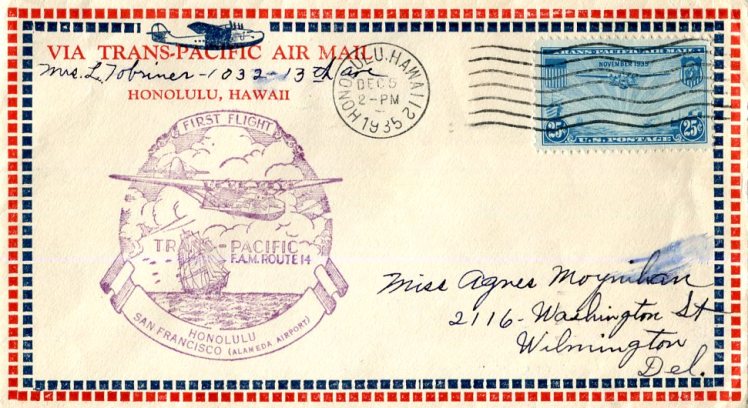 VIA TRANS-PACIFIC AIR MAIL
Mrs. L. Tobriner - 1032 - 13th ave
HONOLULU, HAWAII
HONOLULU, HAWAII 12
DEC 5
2-PM
1935
TRANS-PACIFIC AIR MAIL
NOVEMBER 1935
25¢ 25¢
U.S. POSTAGE
FIRST FLIGHT
TRANS-PACIFIC
F.A.M. ROUTE 14
HONOLULU
SAN FRANCISCO (ALAMEDA AIRPORT)
Miss Agnes Moynihan
2116 - Washington St
Wilmington
Del.